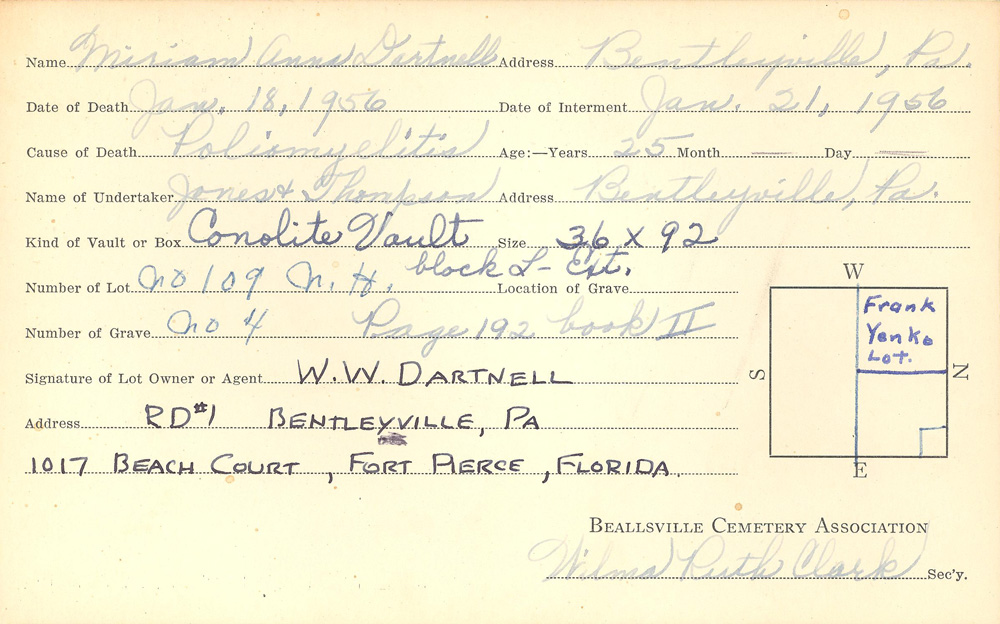 Name Miriam Anna Dartnell Address Bentleyville, Pa.
Date of Death Jan. 18, 1956 Date of Interment Jan. 21, 1956
Cause of Death Poliomyelitis Age:—Years 25 Month — Day —
Name of Undertaker Jones & Thompson Address Bentleyville, Pa.
Kind of Vault or Box Conolite Vault Size 36 x 92
Number of Lot no 109 N. H. block L - Ext. Location of Grave
Number of Grave no 4 Page 192 book II
Signature of Lot Owner or Agent W.W. DARTNELL
Address RD #1 BENTLEYVILLE, PA
1017 BEACH COURT, FORT PIERCE, FLORIDA.
W
Frank
Yenko
Lot.
S
N
E
BEALLSVILLE CEMETERY ASSOCIATION
Wilma Ruth Clark Sec'y.